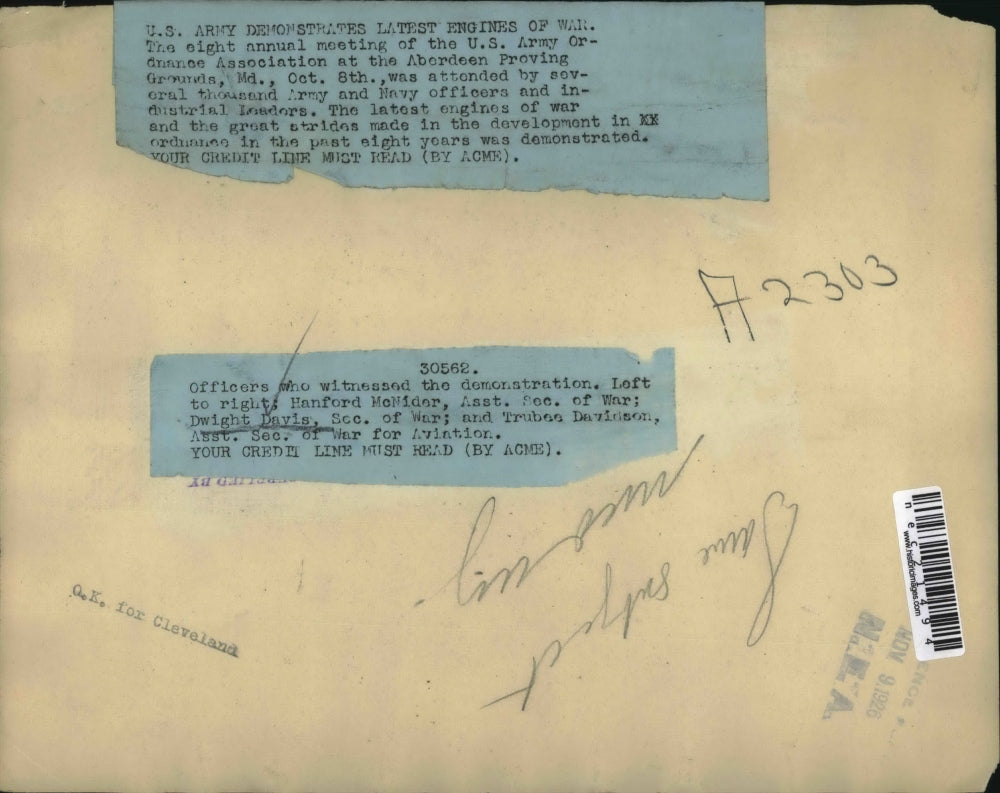 U.S. ARMY DEMONSTRATES LATEST ENGINES OF WAR.
The eight annual meeting of the U.S. Army Or-
dnance Association at the Aberdeen Proving
Grounds, Md., Oct. 8th.,was attended by sev-
eral thousand Army and Navy officers and in-
dustrial Leaders. The latest engines of war
and the great strides made in the development in XX
ordnance in the past eight years was demonstrated.
YOUR CREDIT LINE MUST READ (BY ACME).
A 2303
30562.
Officers who witnessed the demonstration. Left
to right; Hanford McNider, Asst. Sec. of War;
Dwight Davis, Sec. of War; and Trubee Davidson,
Asst. Sec. of War for Aviation.
YOUR CREDIT LINE MUST READ (BY ACME).
Same subject
O.K. for Cleveland
www.historicimages.com
nec21494
NOV 9. 1926
N.E.A.